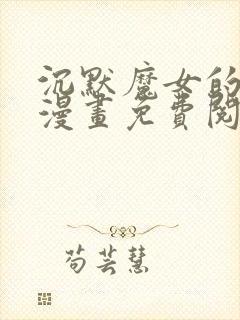 沉默魔女的
漫畫免費閱
苟芸慧